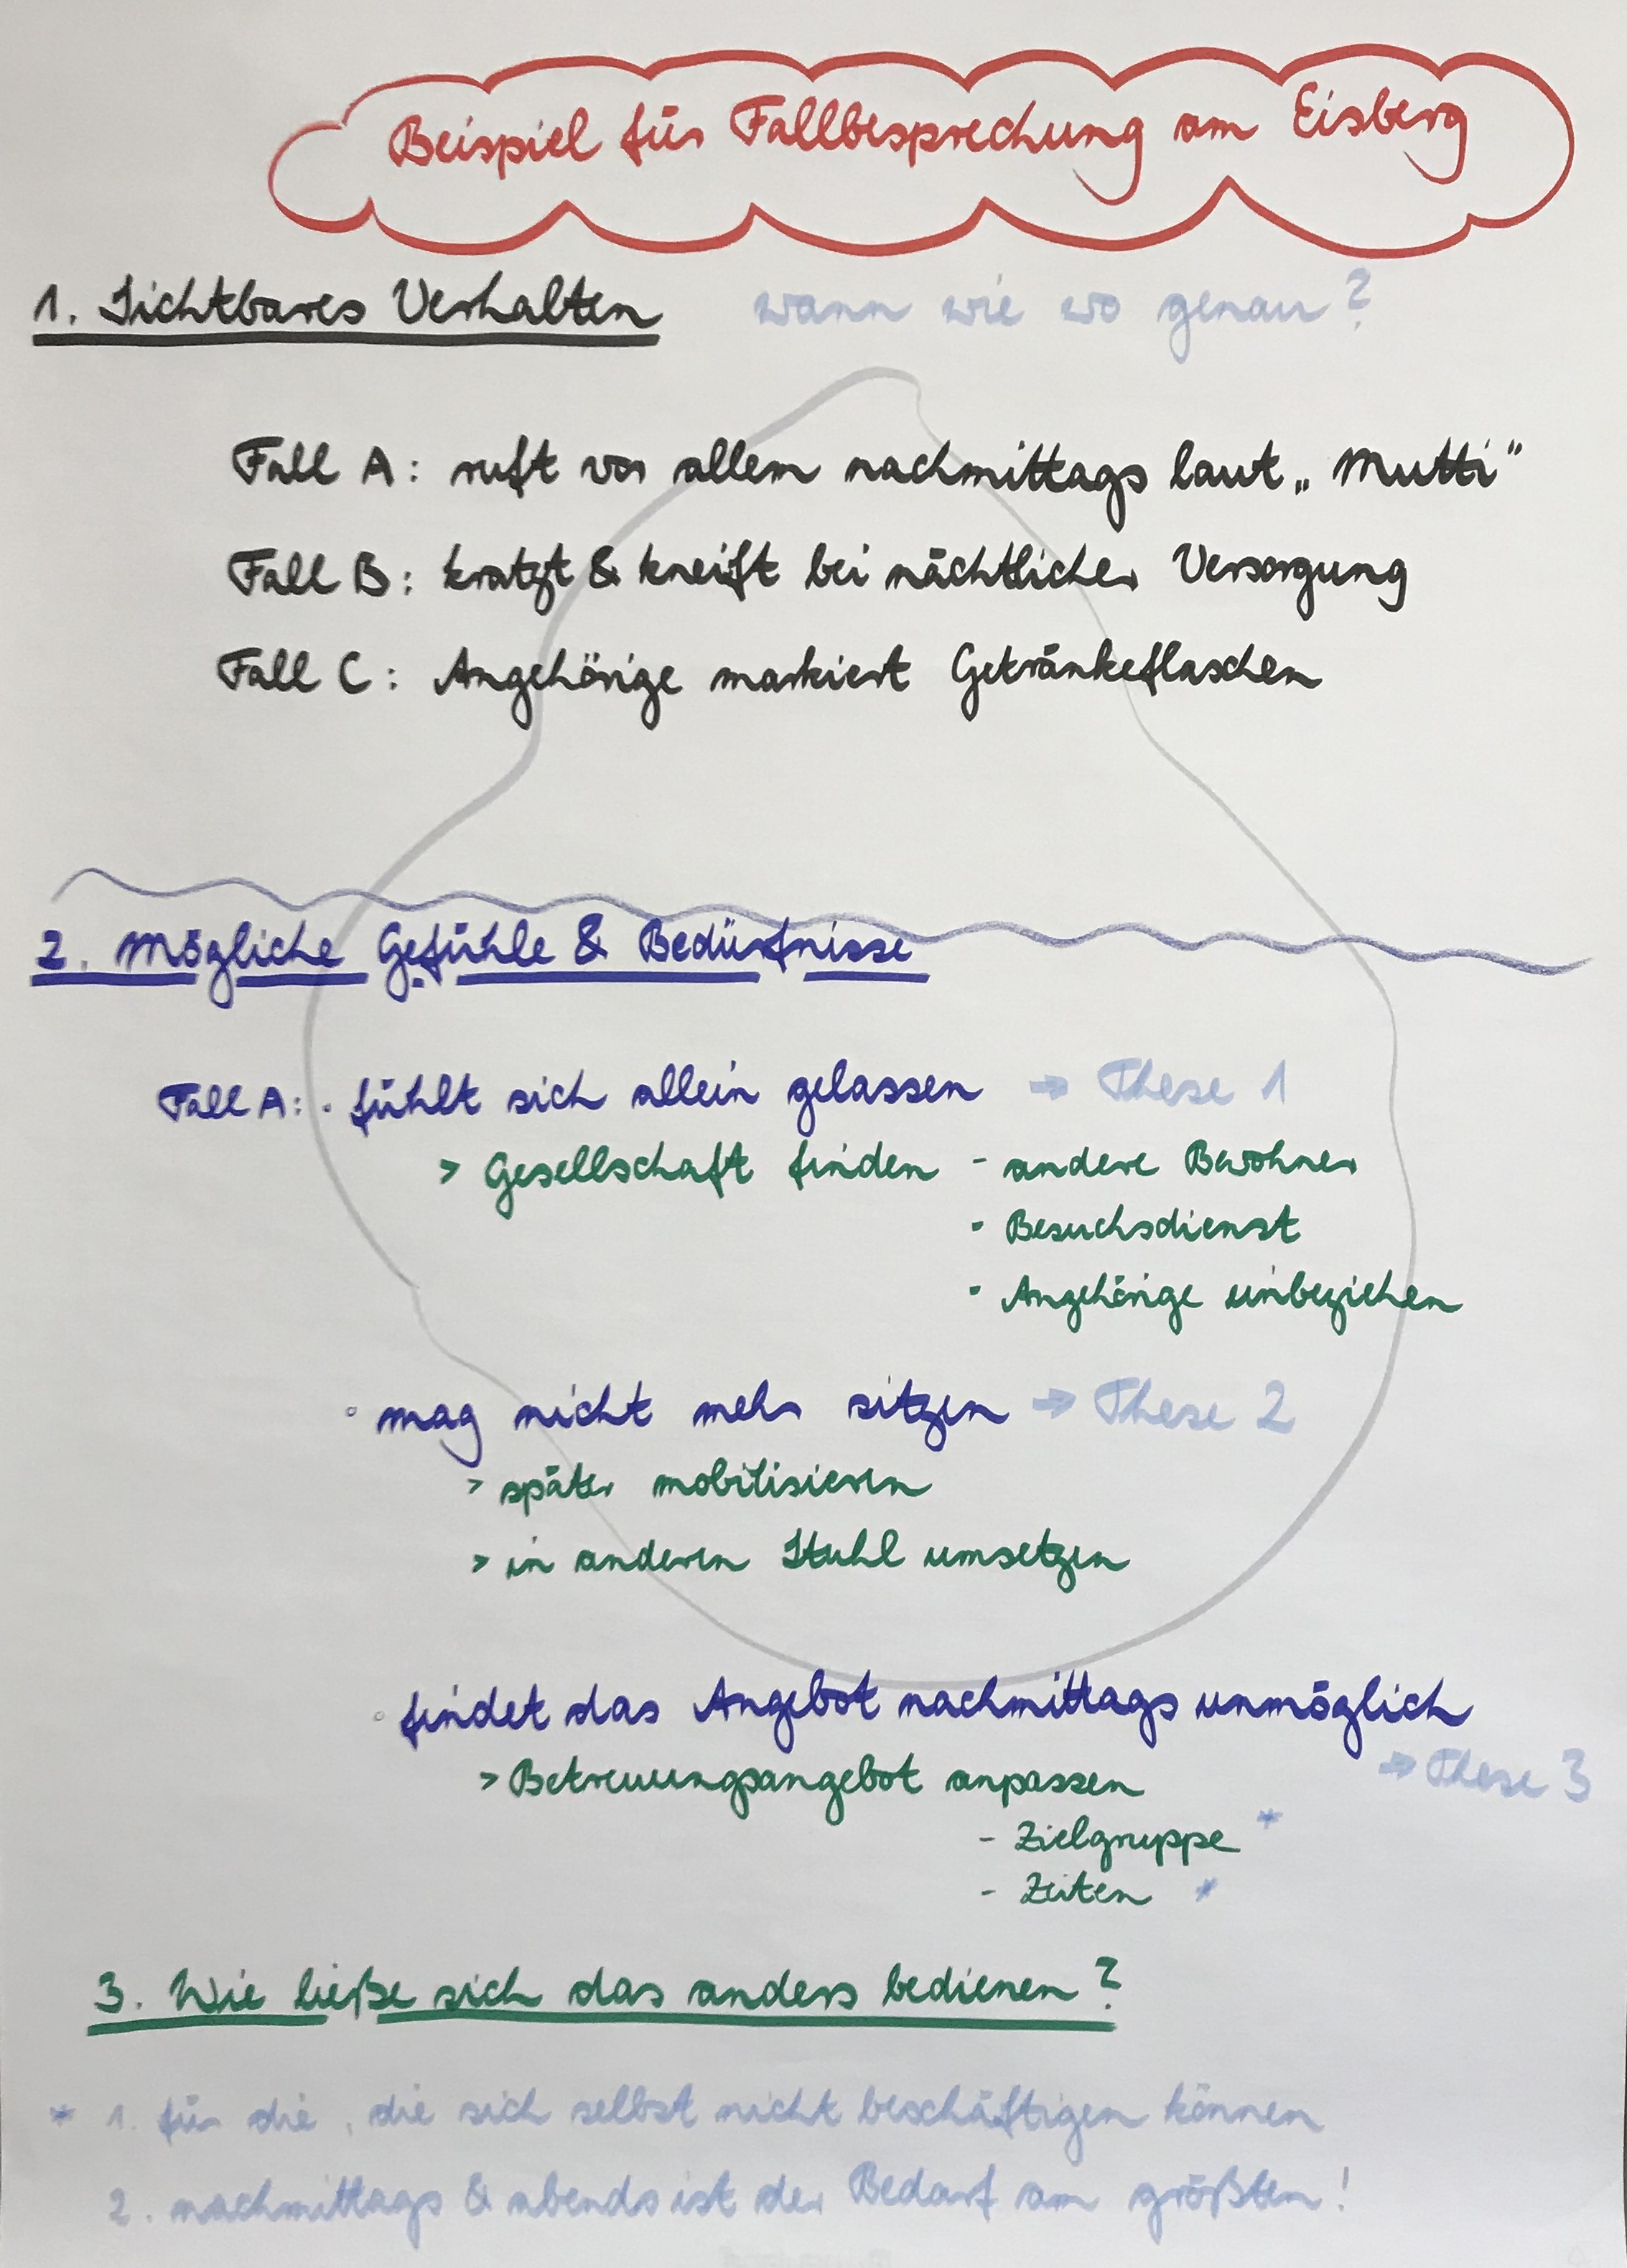 Beispiel für Fallbesprechung am Eisberg
1. Sichtbares Verhalten wann wie wo genau?
Fall A: ruft vor allem nachmittags laut „Mutti"
Fall B: kratzt & kneift bei nächtlicher Versorgung
Fall C: Angehörige markiert Getränkeflaschen
2. Mögliche Gefühle & Bedürfnisse
Fall A: · fühlt sich allein gelassen ⇒ These 1
> Gesellschaft finden - andere Bewohner
· Besuchsdienst
· Angehörige einbeziehen
° mag nicht mehr sitzen ⇒ These 2
> später mobilisieren
> in anderen Stuhl umsetzen
° findet das Angebot nachmittags unmöglich
⇒ These 3
> Betreuungsangebot anpassen
- Zielgruppe *
- Zeiten *
3. Wie ließe sich das anders bedienen?
* 1. für die, die sich selbst nicht beschäftigen können
2. nachmittags & abends ist der Bedarf am größten!